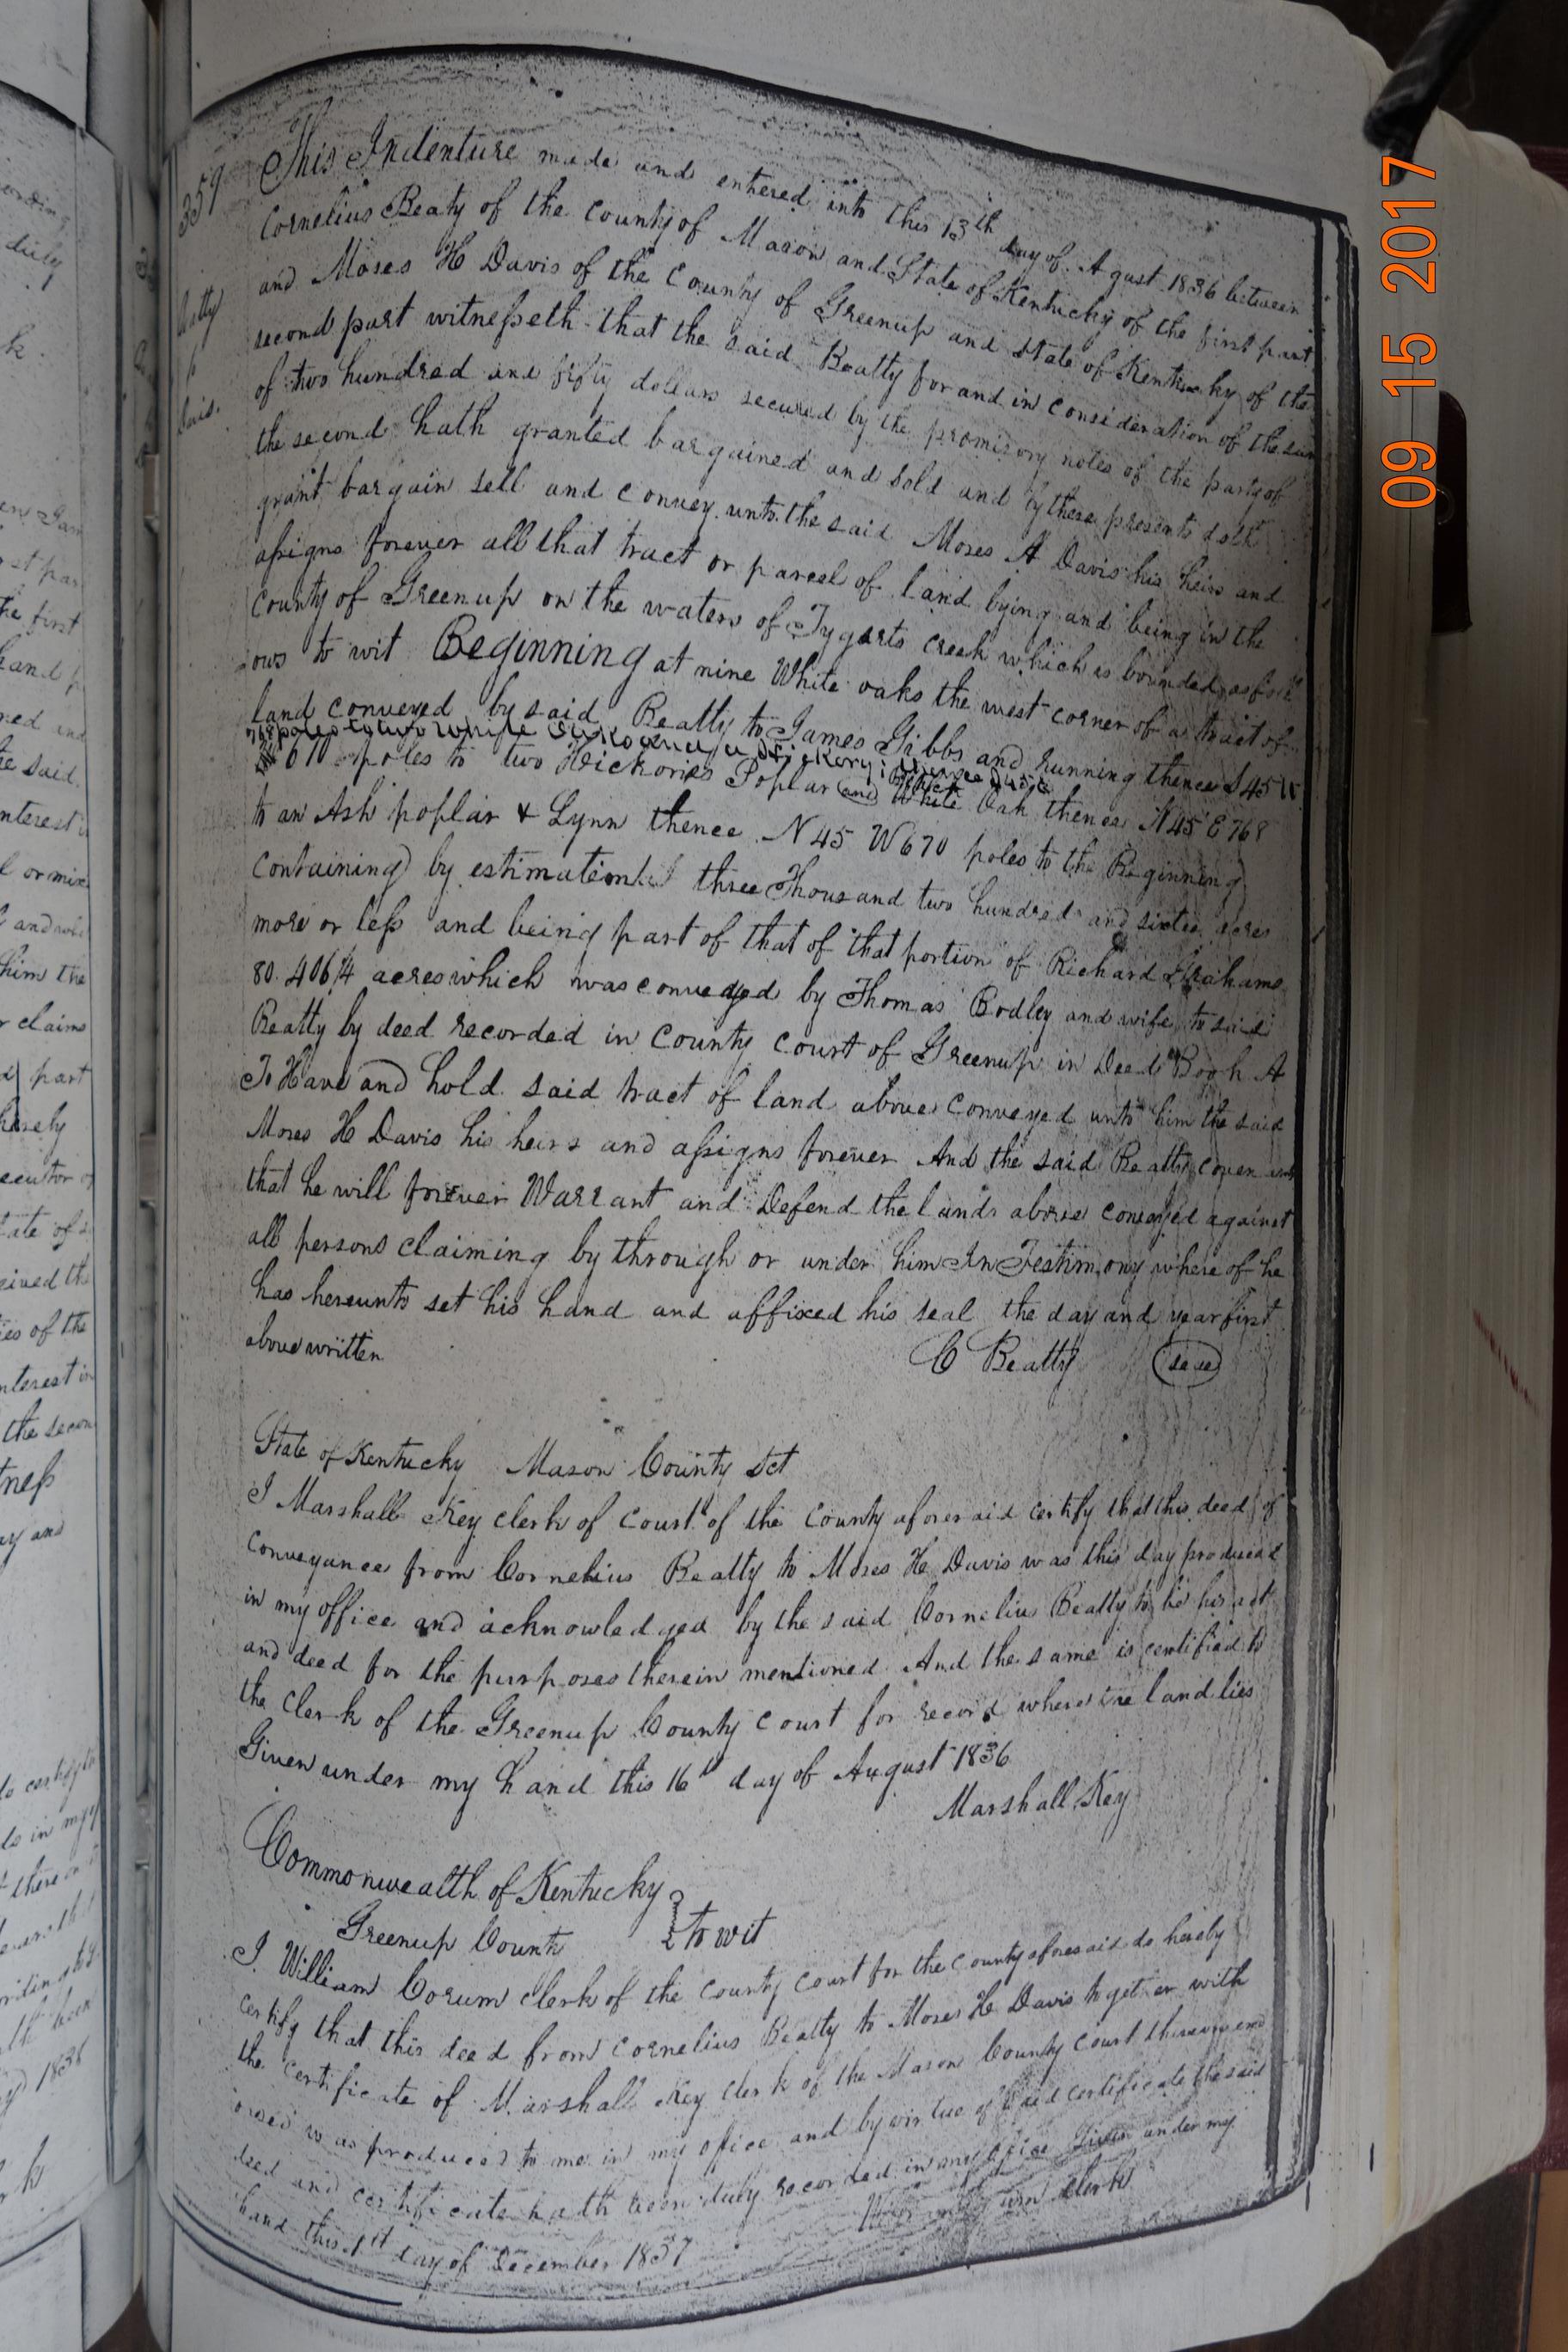 359
This Indenture made and entered into this 13th day of Agust 1836 between
Cornelius Beaty of the County of Mason and State of Kentucky of the first part
and Moses H Davis of the County of Greenup and State of Kentucky of the
second part witnesseth that the said Beatty for and in consideration of the sum
of two hundred and fifty dollars secured by the promisory notes of the party of
the second hath granted bargained and sold and by these presents doth
grant bargain sell and convey unto the said Moses H Davis his heirs and
assigns forever all that tract or parcel of land lying and being in the
County of Greenup on the waters of Tygarts creek which is bounded as foll
ows to wit Beginning at nine White oaks the west corner of a tract of
land conveyed by said Beatty to James Gibbs and running thence S 45 W
768 poles to two white Oaks and a Hickory; thence S 45 E
670 poles to two Hickories Poplar and White Oak thence N 45 E 768
to an Ash poplar & Lynn thence N 45 W 670 poles to the Beginning
containing by estimation three Thousand two hundred and sixteen acres
more or less and being part of that of that portion of Richard Grahams
80.406¼ acres which was conveyed by Thomas Bodley and wife to said
Beatty by deed recorded in County Court of Greenup in Deed Book A
To Have and hold said tract of land above conveyed unto him the said
Moses H Davis his heirs and assigns forever And the said Beatty covenants
that he will forever Warrant and Defend the lands above conveyed against
all persons claiming by through or under him In Testimony where of he
has hereunto set his hand and affixed his seal the day and year first
above written
C Beatty seal
State of Kentucky Mason County Sct
I Marshall Key clerk of Court of the County aforesaid certify that this deed of
conveyance from Cornelius Beatty to Moses H Davis was this day produced
in my office and acknowledged by the said Cornelius Beatty to be his act
and deed for the purposes therein mentioned And the same is certified to
the Clerk of the Greenup County Court for record where the land lies
Given under my hand this 16th day of August 1836
Marshall Key
Commonwealth of Kentucky
Greenup County } to wit
I William Corum clerk of the County Court for the County aforesaid do hereby
certify that this deed from Cornelius Beatty to Moses H Davis together with
the certificate of Marshall Key clerk of the Mason County Court thereon end
orsed was produced to me in my office and by virtue of said certificate the said
deed and certificate hath been duly recorded in my office Given under my
hand this 1st day of December 1837
Wm Corum Clerk
09 15 2017